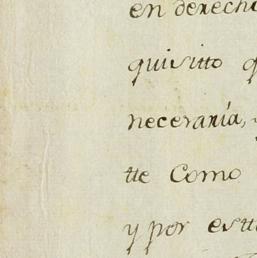 en derecho
quisitto q
neceraria,
tte Como
y por estt